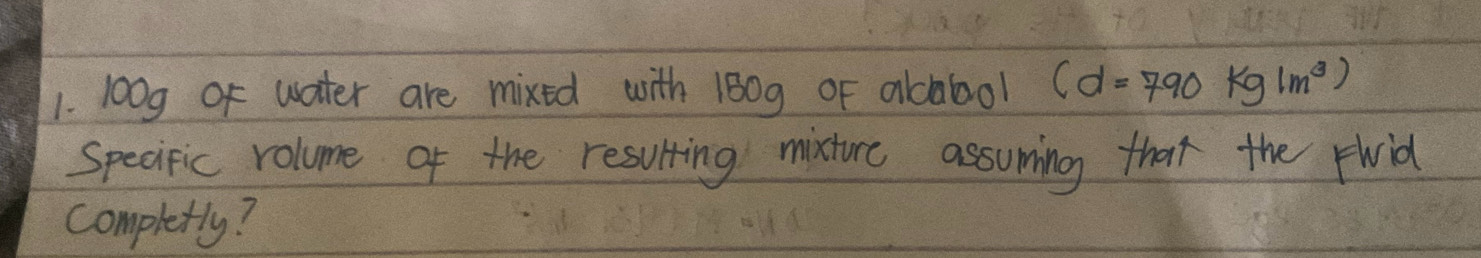 1. 100g of water are mixed with 150g of alcohol (d=790 Kg/m³)
Specific volume of the resulting mixture assuming that the fluid
Completly?